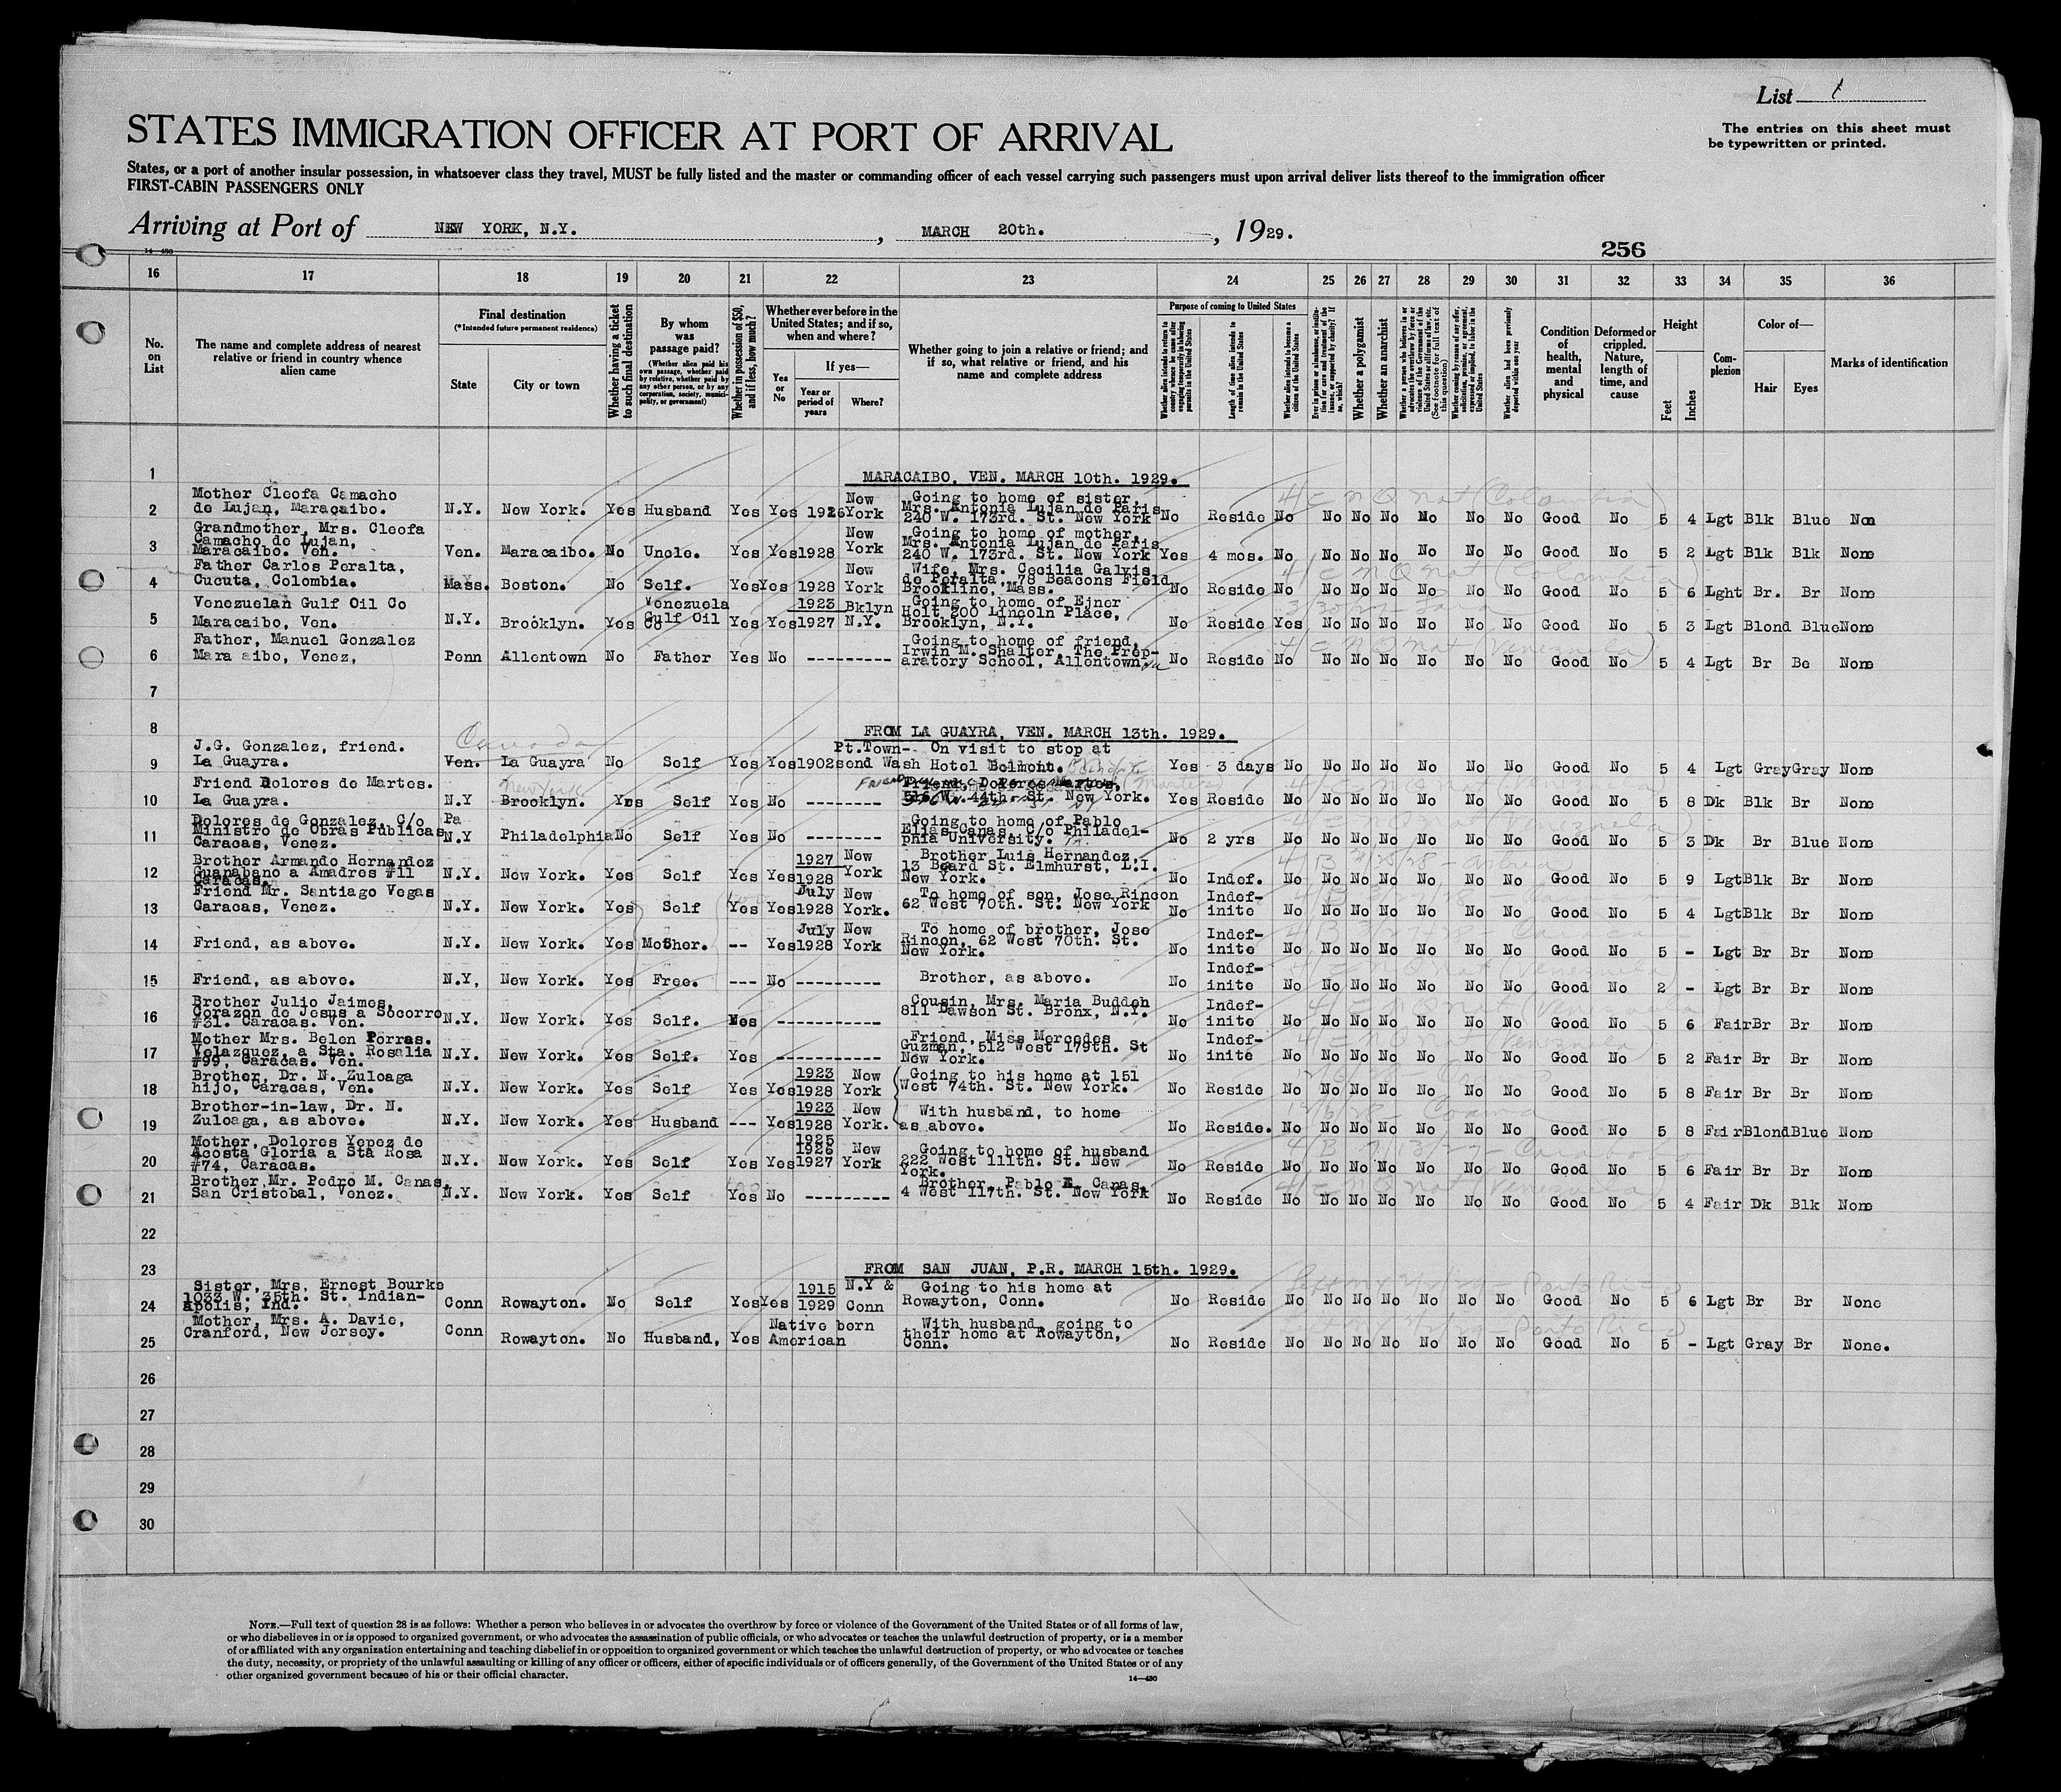 List 1
STATES IMMIGRATION OFFICER AT PORT OF ARRIVAL
The entries on this sheet must
be typewritten or printed.
States, or a port of another insular possession, in whatsoever class they travel, MUST be fully listed and the master or commanding officer of each vessel carrying such passengers must upon arrival deliver lists thereof to the immigration officer
FIRST-CABIN PASSENGERS ONLY
Arriving at Port of NEW YORK, N.Y. , MARCH 20th. , 1929.
14—430
256
16 17 18 19 20 21 22 23 24 25 26 27 28 29 30 31 32 33 34 35 36
No. on List
The name and complete address of nearest relative or friend in country whence alien came
Final destination
(*Intended future permanent residence)
State
City or town
Whether having a ticket to such final destination
By whom was passage paid?
(Whether alien paid his own passage, whether paid by relative, whether paid by any other person, or by any corporation, society, municipality, or government)
Whether in possession of $50, and if less, how much?
Whether ever before in the United States; and if so, when and where?
Yes or No
If yes—
Year or period of years
Where?
Whether going to join a relative or friend; and if so, what relative or friend, and his name and complete address
Purpose of coming to United States
Whether alien intends to return to country whence he came after engaging temporarily in laboring pursuits in the United States
Length of time alien intends to remain in the United States
Whether alien intends to become a citizen of the United States
Ever in prison or almshouse, or institution for care and treatment of the insane, or supported by charity? If so, which?
Whether a polygamist
Whether an anarchist
Whether a person who believes in or advocates the overthrow by force or violence of the Government of the United States or all forms of law, etc. (See footnote for full text of this question)
Whether coming by reason of any offer, solicitation, promise, or agreement, expressed or implied, to labor in the United States
Whether alien had been previously deported within one year
Condition of health, mental and physical
Deformed or crippled. Nature, length of time, and cause
Height
Feet
Inches
Complexion
Color of—
Hair
Eyes
Marks of identification
1 MARACAIBO, VEN. MARCH 10th. 1929.
2 Mother Cleofa Camacho de Lujan, Maracaibo. N.Y. New York. Yes Husband Yes Yes 1926 New York Going to home of sister, Mrs. Antonia Lujan de Paris 240 W. 173rd. St. New York No Reside No No No No No No No Good No 5 4 Lgt Blk Blue Non
4/C N Q nat (Colombia)
3 Grandmother, Mrs. Cleofa Camacho de Lujan, Maracaibo. Ven. Ven. Maracaibo. No Uncle. Yes Yes 1928 New York Going to home of mother, Mrs. Antonia Lujan de Paris 240 W. 173rd. St. New York Yes 4 mos. No No No No No No No Good No 5 2 Lgt Blk Blk None
4 Father Carlos Peralta, Cucuta, Colombia. Mass. Boston. No Self. Yes Yes 1928 New York Wife, Mrs. Cecilia Galvis de Peralta, 78 Beacons Field Brookline, Mass. No Reside No No No No No No No Good No 5 6 Lght Br. Br None
4/C N Q nat (Colombia)
5 Venezuelan Gulf Oil Co Maracaibo, Ven. N.Y. Brooklyn. Yes Venezuela Gulf Oil Co Yes Yes 1923 1927 Bklyn N.Y. Going to home of Ejner Holt 200 Lincoln Place, Brooklyn, N.Y. No Reside Yes No No No No No No Good No 5 3 Lgt Blond Blue None
6 Father, Manuel Gonzalez Mara aibo, Venez, Penn Allentown No Father Yes No --------- Going to home of friend, Irwin M. Shalter, The Preparatory School, Allentown, No Reside No No No No No No No Good No 5 4 Lgt Br Be None
4/C N Q nat (Venezuela)
7
8 FROM LA GUAYRA, VEN. MARCH 13th. 1929.
9 J.G. Gonzalez, friend. La Guayra. Canada Ven. La Guayra No Self Yes Yes 1902 Pt.Town-send Wash On visit to stop at Hotel Belmont. Yes 3 days No No No No No No No Good No 5 4 Lgt Gray Gray None
10 Friend Dolores de Martes. La Guayra. N.Y New York Brooklyn. Yes Self Yes No -------- Friend, Dolores 516 W. 44th. St. New York. Yes Reside No No No No No No No Good No 5 8 Dk Blk Br None
11 Dolores de Gonzalez, C/o Ministro de Obras Publicas Caracas, Venez. Pa N.Y Philadelphia No Self Yes No -------- Going to home of Pablo Elias Canas, C/o Philadelphia University. No 2 yrs No No No No No No No Good No 5 3 Dk Br Blue None
4/C N Q nat (Venezuela)
12 Brother Armando Hernandez Guanabano a Amadres #11 Caracas. N.Y. New York. Yes Self Yes Yes 1927 1928 New York Brother Luis Hernandez, 13 Beard St. Elmhurst, L.I. New York. No Indef. No No No No No No No Good No 5 9 Lgt Blk Br None
13 Friend Mr. Santiago Vegas Caracas, Venez. N.Y. New York. Yes Self Yes Yes July 1928 New York. To home of son, Jose Rincon 62 West 70th. St. New York No Indef-inite No No No No No No No Good No 5 4 Lgt Blk Br None
14 Friend, as above. N.Y. New York. Yes Mother. -- Yes July 1928 New York To home of brother, Jose Rincon, 62 West 70th. St. New York. No Indef-inite No No No No No No No Good No 5 - Lgt Br Br None
15 Friend, as above. N.Y, New York. Yes Free. --- No --------- Brother, as above. No Indef-inite No No No No No No No Good No 2 - Lgt Br Br None
4/C N Q nat (Venezuela)
16 Brother Julio Jaimes, Corazon de Jesus a Socorro #31. Caracas. Ven. N.Y. New York. Yes Self. Yes ----------- Cousin, Mrs. Maria Buddeh 811 Dawson St. Bronx, N.Y. No Indef-inite No No No No No No No Good No 5 6 Fair Br Br None
17 Mother Mrs. Belen Porras. Velazquez, a Sta. Rosalia #99, Caracas. Ven. N.Y. New York. Yes Self. Yes ----------- Friend, Miss Mercedes Guzman, 512 West 179th. St New York. No Indef-inite No No No No No No No Good No 5 2 Fair Br Br None
4/C N Q nat (Venezuela)
18 Brother, Dr. N. Zuloaga hijo, Caracas, Ven. N.Y. New York. Yes Self Yes Yes 1923 1928 New York Going to his home at 151 West 74th. St. New York. No Reside No No No No No No No Good No 5 8 Fair Br Br None
19 Brother-in-law, Dr. N. Zuloaga, as above. N.Y. New York. Yes Husband --- Yes 1923 1928 New York. With husband, to home as above. No Reside. No No No No No No No Good No 5 8 Fair Blond Blue None
12/6/28 - Coamo
20 Mother, Dolores Yepez de Acosta Gloria a Sta Rosa #74, Caracas. N.Y. New York. Yes Self Yes Yes 1925 1926 1927 New York Going to home of husband 222 West 111th. St. New York. No Reside No No No No No No No Good No 5 6 Fair Br Br None
21 Brother Mr. Pedro M. Canas, San Cristobal, Venez. N.Y. New York. Yes Self Yes No ---------- Brother, Pablo E. Canas. 4 West 117th. St. New York No Reside No No No No No No No Good No 5 4 Fair Dk Blk None
4/C N Q nat (Venezuela)
22
23 FROM SAN JUAN, P.R. MARCH 15th. 1929.
24 Sister, Mrs, Ernest Bourke 1033 W. 35th. St. Indian-apolis, Ind. Conn Rowayton. No Self Yes Yes 1915 1929 N.Y & Conn Going to his home at Rowayton, Conn. No Reside No No No No No No No Good No 5 6 Lgt Br Br None
Porto Rico
25 Mother, Mrs. A. Davie, Cranford, New Jersey. Conn Rowayton. No Husband, Yes Native born American With husband, going to their home at Rowayton, Conn. No Reside No No No No No No No Good No 5 - Lgt Gray Br None.
Porto Rico
26
27
28
29
30
NOTE.—Full text of question 28 is as follows: Whether a person who believes in or advocates the overthrow by force or violence of the Government of the United States or of all forms of law,
or who disbelieves in or is opposed to organized government, or who advocates the assassination of public officials, or who advocates or teaches the unlawful destruction of property, or is a member
of or affiliated with any organization entertaining and teaching disbelief in or opposition to organized government or which teaches the unlawful destruction of property, or who advocates or teaches
the duty, necessity, or propriety of the unlawful assaulting or killing of any officer or officers, either of specific individuals or of officers generally, of the Government of the United States or of any
other organized government because of his or their official character.
14—430